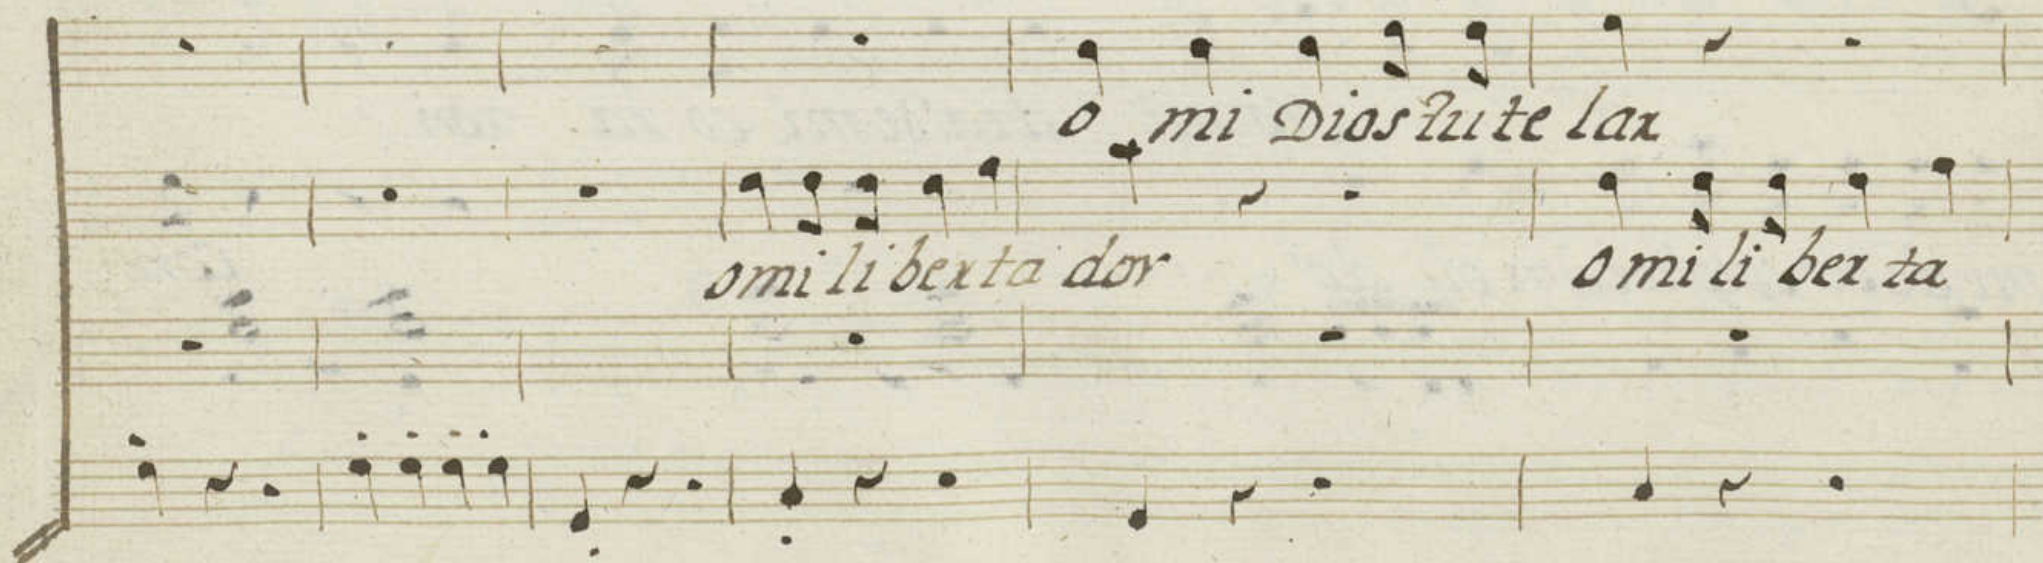 o mi Dios tu te lar
omi li ber ta dor o mi li ber ta